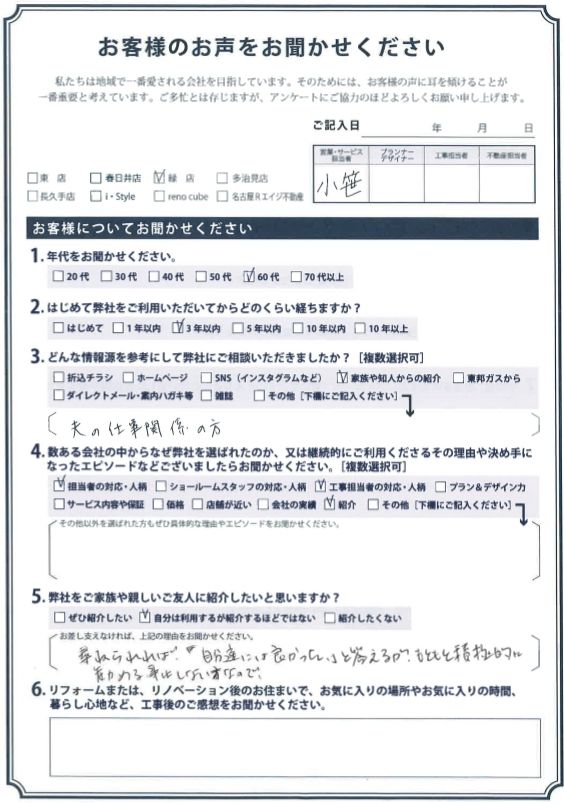 お客様のお声をお聞かせください
私たちは地域で一番愛される会社を目指しています。そのためには、お客様の声に耳を傾けることが
一番重要と考えています。ご多忙とは存じますが、アンケートにご協力のほどよろしくお願い申し上げます。
ご記入日 年 月 日
営業・サービス担当者 プランナーデザイナー 工事担当者 不動産担当者
小笹
□東 店 □春日井店 ☑緑 店 □多治見店
□長久手店 □i・Style □reno cube □名古屋Rエイジ不動産
お客様についてお聞かせください
1.年代をお聞かせください。
□20代 □30代 □40代 □50代 ☑60代 □70代以上
2.はじめて弊社をご利用いただいてからどのくらい経ちますか？
□はじめて □1年以内 ☑3年以内 □5年以内 □10年以内 □10年以上
3.どんな情報源を参考にして弊社にご相談いただきましたか？［複数選択可］
□折込チラシ □ホームページ □SNS（インスタグラムなど） ☑家族や知人からの紹介 □東邦ガスから
□ダイレクトメール・案内ハガキ等 □雑誌 □その他［下欄にご記入ください］
夫の仕事関係の方
4.数ある会社の中からなぜ弊社を選ばれたのか、又は継続的にご利用くださるその理由や決め手に
なったエピソードなどございましたらお聞かせください。［複数選択可］
☑担当者の対応・人柄 □ショールームスタッフの対応・人柄 ☑工事担当者の対応・人柄 □プラン＆デザイン力
□サービス内容や保証 □価格 □店舗が近い □会社の実績 ☑紹介 □その他［下欄にご記入ください］
その他以外を選ばれた方もぜひ具体的な理由やエピソードをお聞かせください。
5.弊社をご家族や親しいご友人に紹介したいと思いますか？
□ぜひ紹介したい ☑自分は利用するが紹介するほどではない □紹介したくない
お差し支えなければ、上記の理由をお聞かせください。
尋ねられれば、『自分達には良かった』と答えるが、もともと積極的に
勧める事はしない方なので、
6.リフォームまたは、リノベーション後のお住まいで、お気に入りの場所やお気に入りの時間、
暮らし心地など、工事後のご感想をお聞かせください。